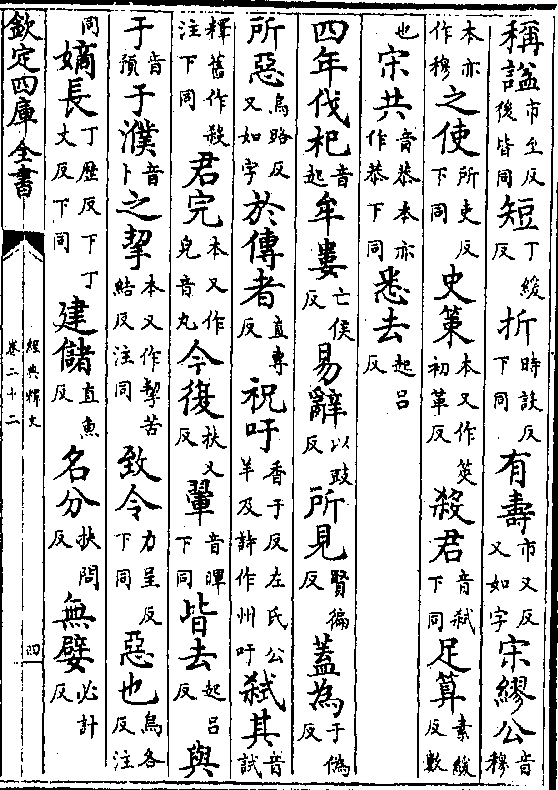 稱謚市至反後皆同短丁緩反折時設反下同有壽市又反又如字宋繆公音穆
本亦作穆之使所吏反下同史策本又作筴初革反殺君音弑下同足算素緩反數
也宋共音恭本亦作恭下同悉去起吕反
四年伐杞音起牟婁亡侯反易辭以豉反所見賢徧反蓋為于偽反
所惡烏路反又如字於傳者直專反祝吁香于反左氏公羊及詩作州吁弑其音試
釋舊作殺注下同君完本又作皃音丸今復扶又反翬音暉下同皆去起吕反與
于音預于濮音卜之挈本又作挈苦結反注同致令力呈反下同惡也烏各反注
同嫡長丁歷反下丁丈反下同建儲直魚反名分扶問反無嬖必計反
欽定四庫全書
經典釋文
卷二十二
四